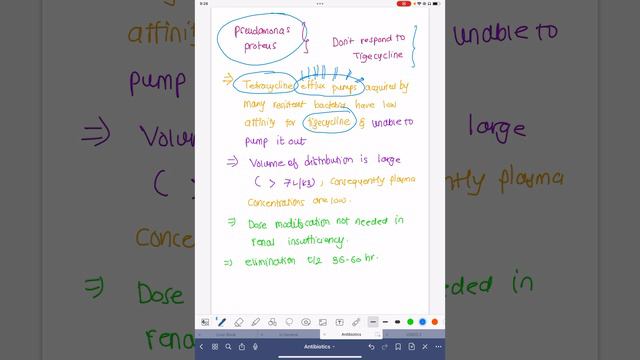 9:28
Pseudomonas
proteus
Don't respond to
Tigecycline
⇒ Tetracycline efflux pumps acquired by
many resistant bacteria have low
affinity for tigecycline & unable to
pump it out
⇒ Volume of distribution is large
( > 7L/kg), consequently plasma
concentrations are low.
⇒ Dose modification not needed in
renal insufficiency.
⇒ elimination t1/2 36-60 hr.
Antibiotics
Antibiotics
affinity
unable to
pump
⇒ Volu
large
( >
ntly plasma
Conce
⇒ Dose
eded in
rena